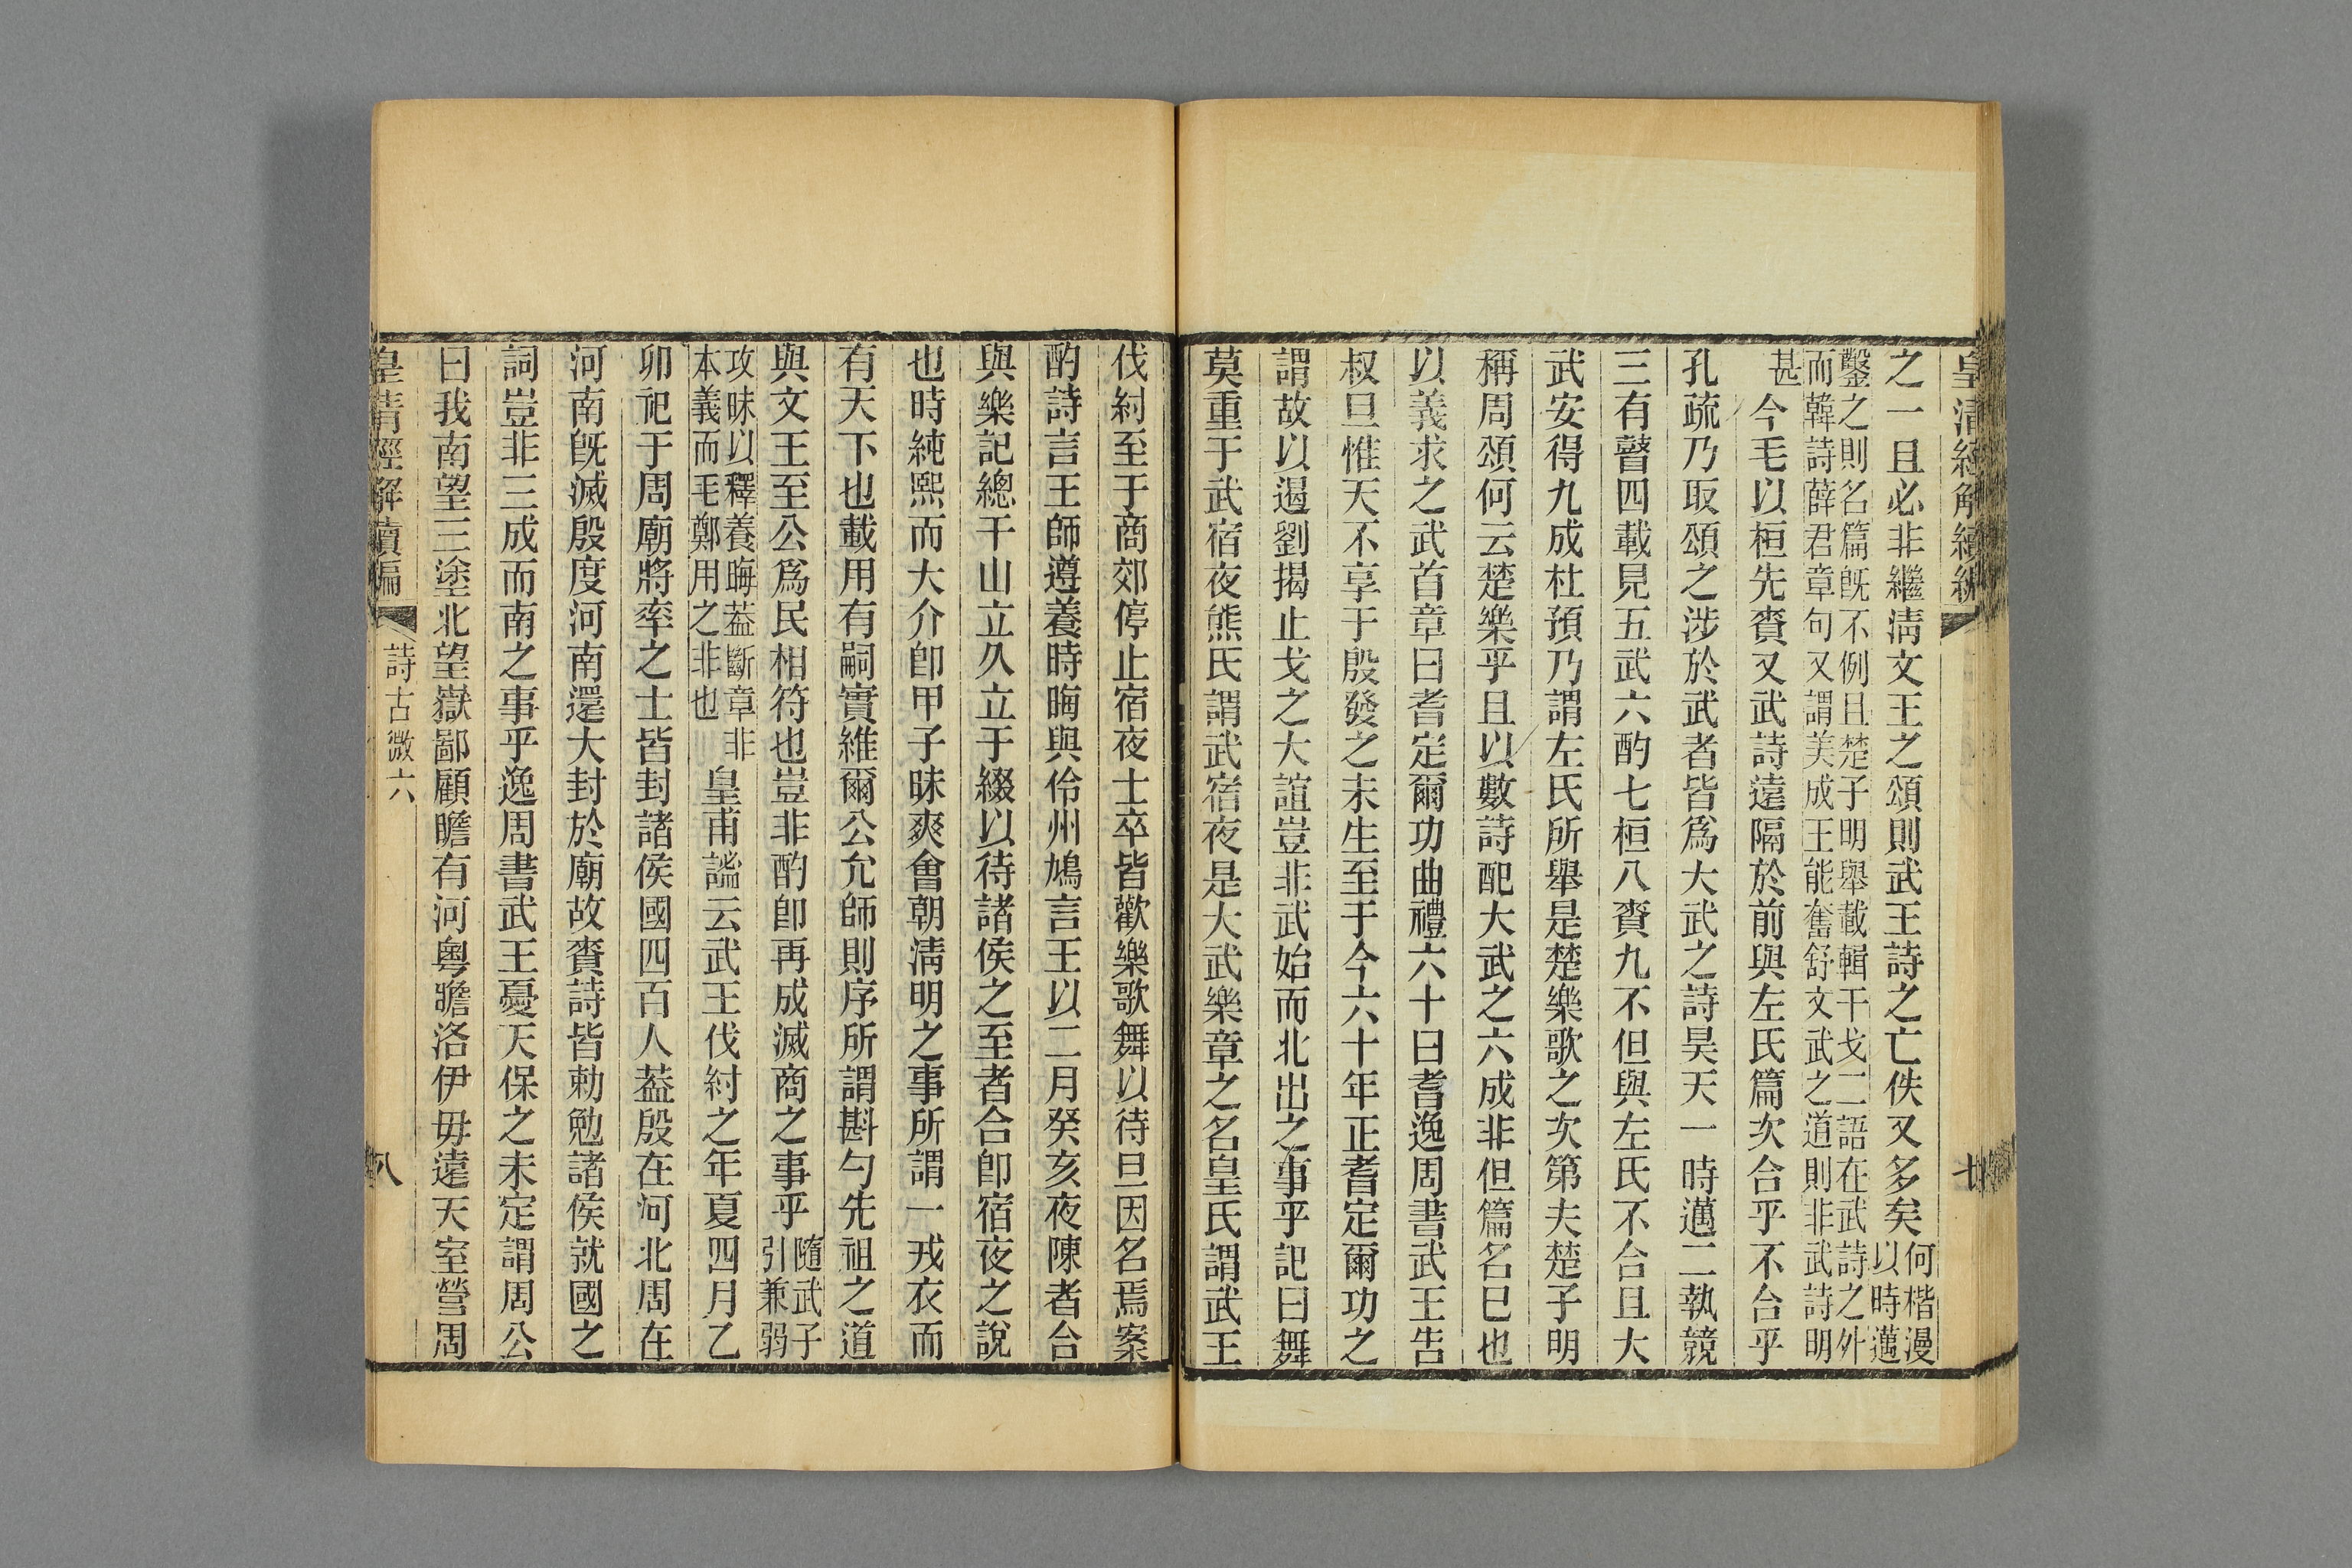 皇清經解續編
七
之一且必非繼清文王之頌則武王詩之亡佚又多矣何楷漫以時邁
鑿之則名篇旣不例且楚子明舉載輯干戈二語在武詩之外
而韓詩薛君章句又謂美成王能奮舒文武之道則非武詩明
甚今毛以桓先賚又武詩遠隔於前與左氏篇次合乎不合乎
孔疏乃取頌之涉於武者皆爲大武之詩昊天一時邁二執競
三有瞽四載見五武六酌七桓八賚九不但與左氏不合且大
武安得九成杜預乃謂左氏所舉是楚樂歌之次第夫楚子明
稱周頌何云楚樂乎且以數詩配大武之六成非但篇名巳也
以義求之武首章曰耆定爾功曲禮六十曰耆逸周書武王告
叔旦惟天不享于殷發之未生至于今六十年正耆定爾功之
謂故以遏劉揭止戈之大誼豈非武始而北出之事乎記曰舞
莫重于武宿夜熊氏謂武宿夜是大武樂章之名皇氏謂武王
伐紂至于商郊停止宿夜士卒皆歡樂歌舞以待旦因名焉案
酌詩言王師遵養時晦與伶州鳩言王以二月癸亥夜陳者合
與樂記總干山立久立于綴以待諸侯之至者合卽宿夜之說
也時純熙而大介卽甲子昧爽會朝清明之事所謂一戎衣而
有天下也載用有嗣實維爾公允師則序所謂斟勺先祖之道
與文王至公爲民相符也豈非酌卽再成滅商之事乎隨武子引兼弱
攻昧以釋養晦葢斷章非
本義而毛鄭用之非也皇甫謐云武王伐紂之年夏四月乙
卯祀于周廟將率之士皆封諸侯國四百人葢殷在河北周在
河南旣滅殷度河南還大封於廟故賚詩皆勅勉諸侯就國之
詞豈非三成而南之事乎逸周書武王憂天保之未定謂周公
曰我南望三塗北望嶽鄙顧瞻有河粵瞻洛伊毋遠天室營周
皇清經解續編
詩古微六
八